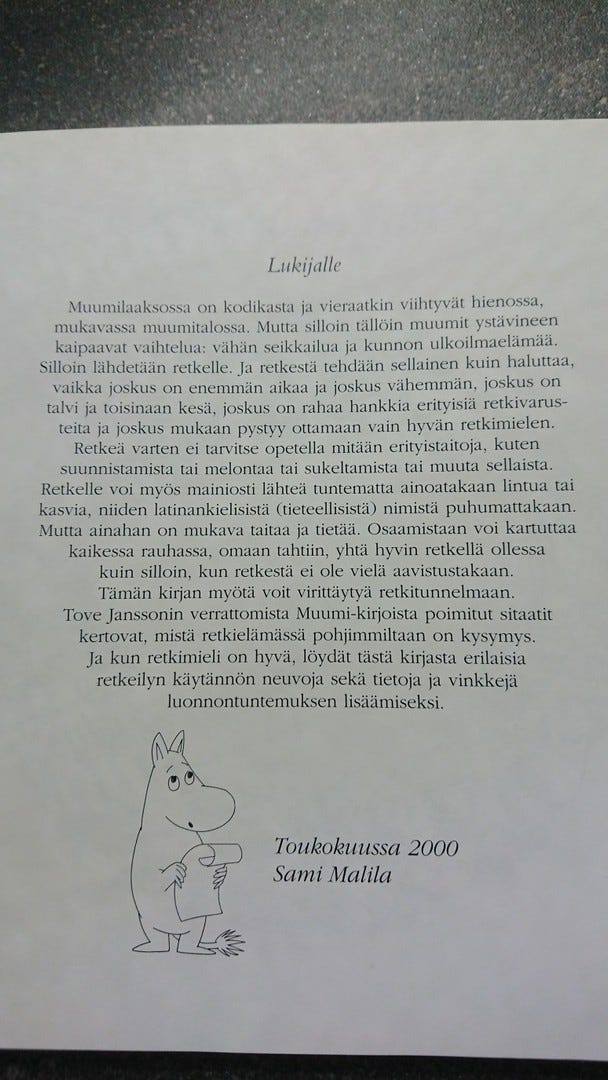 Lukijalle
Muumilaaksossa on kodikasta ja vieraatkin viihtyvät hienossa,
mukavassa muumitalossa. Mutta silloin tällöin muumit ystävineen
kaipaavat vaihtelua: vähän seikkailua ja kunnon ulkoilmaelämää.
Silloin lähdetään retkelle. Ja retkestä tehdään sellainen kuin haluttaa,
vaikka joskus on enemmän aikaa ja joskus vähemmän, joskus on
talvi ja toisinaan kesä, joskus on rahaa hankkia erityisiä retkivarus-
teita ja joskus mukaan pystyy ottamaan vain hyvän retkimielen.
Retkeä varten ei tarvitse opetella mitään erityistaitoja, kuten
suunnistamista tai melontaa tai sukeltamista tai muuta sellaista.
Retkelle voi myös mainiosti lähteä tuntematta ainoatakaan lintua tai
kasvia, niiden latinankielisistä (tieteellisistä) nimistä puhumattakaan.
Mutta ainahan on mukava taitaa ja tietää. Osaamistaan voi kartuttaa
kaikessa rauhassa, omaan tahtiin, yhtä hyvin retkellä ollessa
kuin silloin, kun retkestä ei ole vielä aavistustakaan.
Tämän kirjan myötä voit virittäytyä retkitunnelmaan.
Tove Janssonin verrattomista Muumi-kirjoista poimitut sitaatit
kertovat, mistä retkielämässä pohjimmiltaan on kysymys.
Ja kun retkimieli on hyvä, löydät tästä kirjasta erilaisia
retkeilyn käytännön neuvoja sekä tietoja ja vinkkejä
luonnontuntemuksen lisäämiseksi.
Toukokuussa 2000
Sami Malila